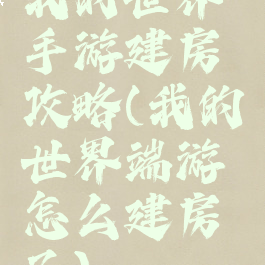 我的世界
手游建房
攻略(我的
世界端游
怎么建房
子)